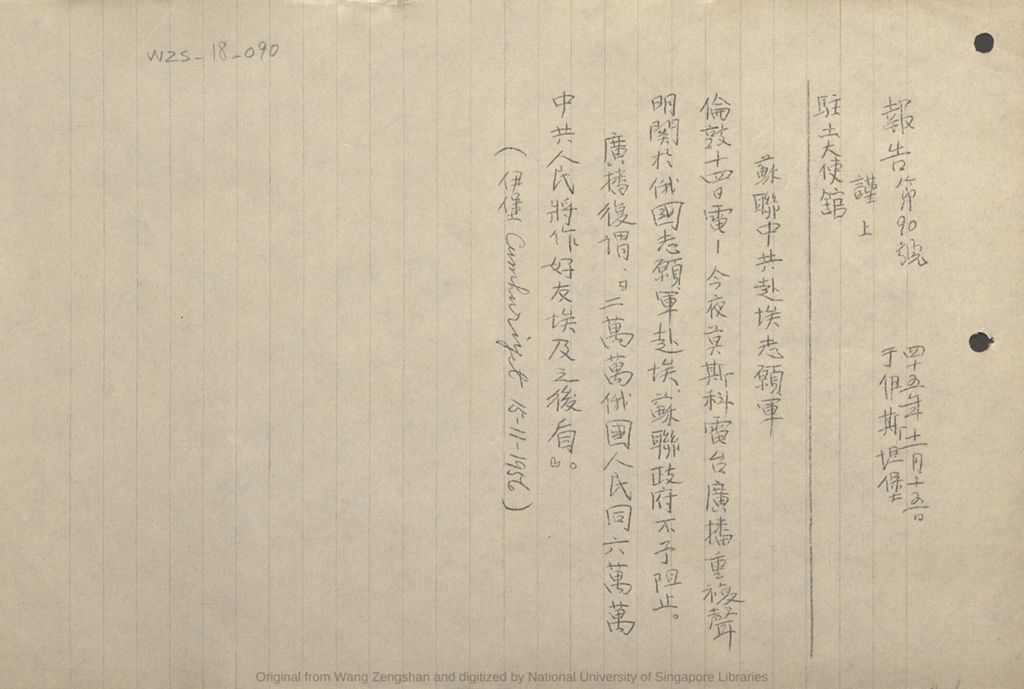 WZS-18-090
報告第90號
四十五年十一月十五日
于伊斯坦堡
謹上
駐土大使館
蘇聯中共赴埃志願軍
倫敦十四日電-今夜莫斯科電台廣播重複聲
明關於俄國志願軍赴埃、蘇聯政府不予阻止。
廣播復謂、『二萬萬俄國人民同六萬萬
中共人民將作好友埃及之後盾』。
(伊堡 Cumhuriyet 15-11-1956)
Original from Wang Zengshan and digitized by National University of Singapore Libraries